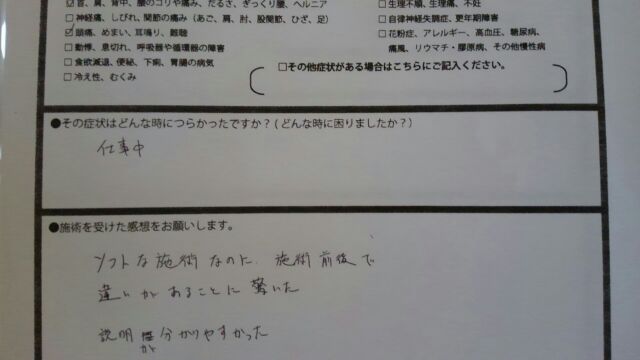 ☑首、肩、背中、腰のコリや痛み、だるさ、ぎっくり腰、ヘルニア
□神経痛、しびれ、関節の痛み（あご、肩、肘、股関節、ひざ、足）
☑頭痛、めまい、耳鳴り、難聴
□動悸、息切れ、呼吸器や循環器の障害
□食欲減退、便秘、下痢、胃腸の病気
□冷え性、むくみ
□生理不順、生理痛、不妊
□自律神経失調症、更年期障害
□花粉症、アレルギー、高血圧、糖尿病、
痛風、リウマチ・膠原病、その他慢性病
□その他症状がある場合はこちらにご記入ください。
●その症状はどんな時につらかったですか？(どんな時に困りましたか？)
仕事中
●施術を受けた感想をお願いします。
ソフトな施術なのに、施術前後で
違いがあることに驚いた
説明が分かりやすかった